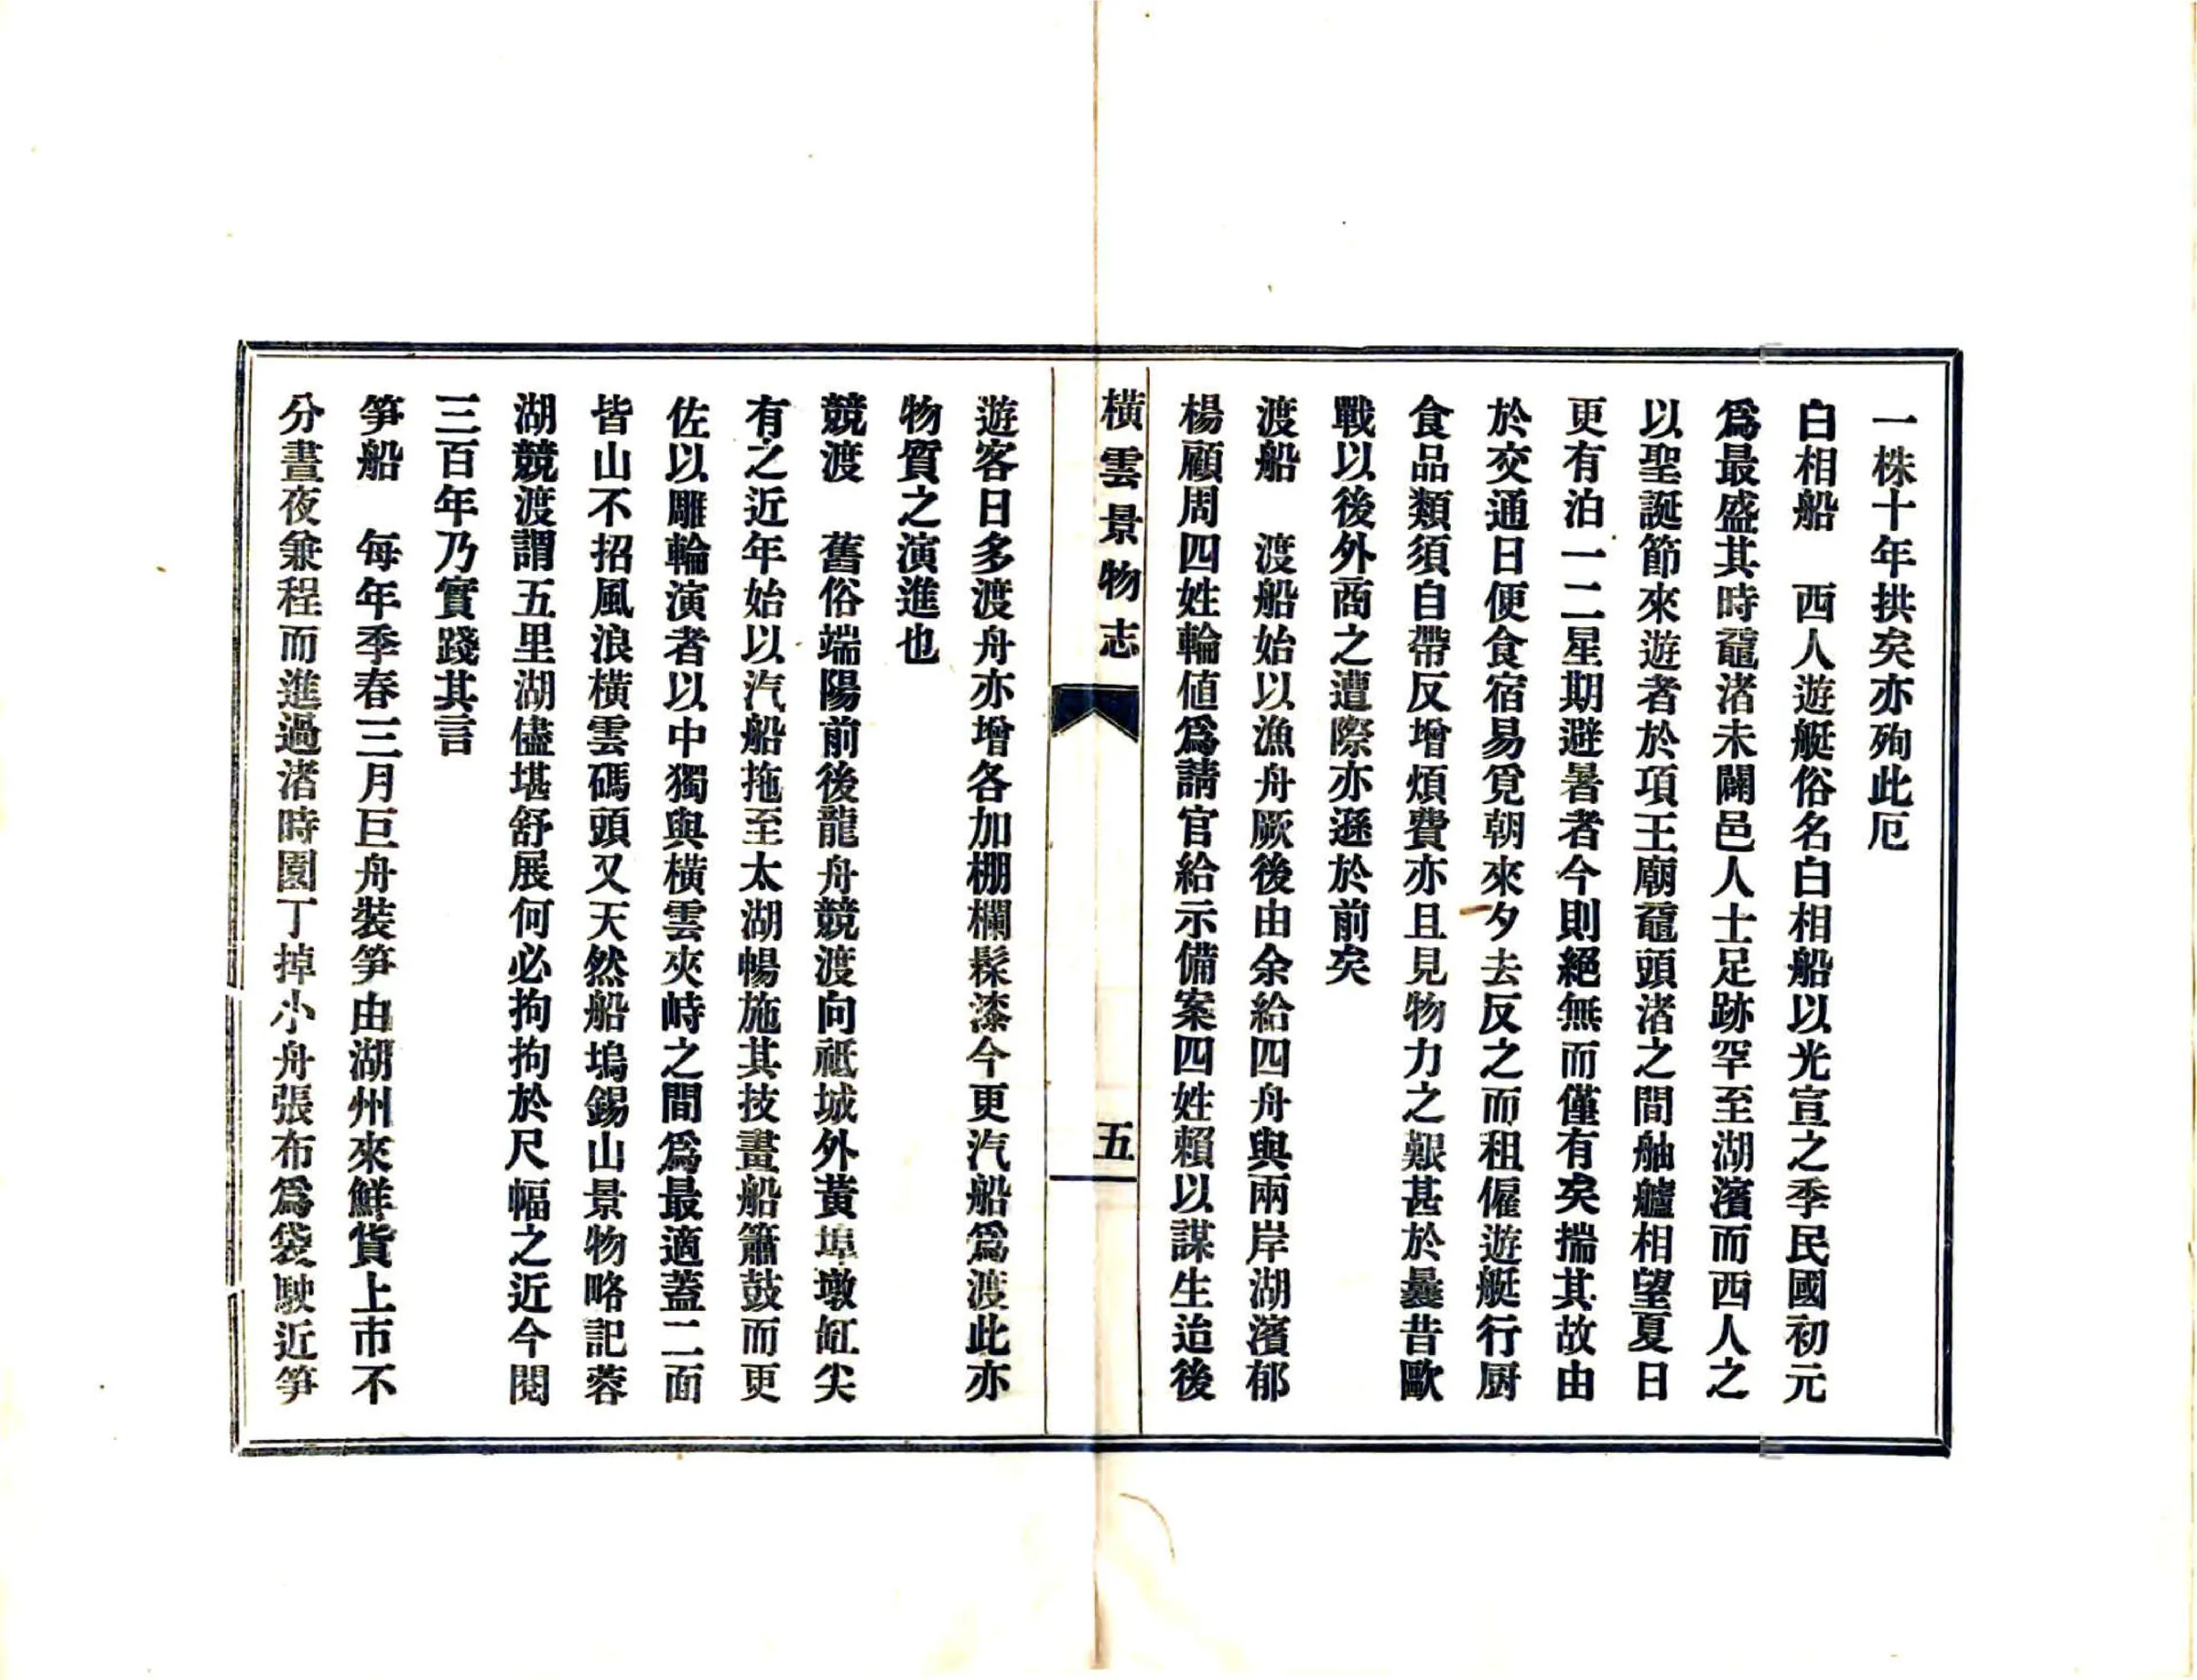 一株十年拱矣亦殉此厄
白相船　西人遊艇俗名白相船以光宣之季民國初元
爲最盛其時黿渚未闢邑人士足跡罕至湖濱而西人之
以聖誕節來遊者於項王廟黿頭渚之間舳艫相望夏日
更有泊一二星期避暑者今則絕無而僅有矣揣其故由
於交通日便食宿易覓朝來夕去反之而租僱遊艇行厨
食品類須自帶反增煩費亦且見物力之艱甚於曩昔歐
戰以後外商之遭際亦遜於前矣
渡船　渡船始以漁舟厥後由余給四舟與兩岸湖濱郁
楊顧周四姓輪値爲請官給示備案四姓賴以謀生迨後
橫雲景物志
五
遊客日多渡舟亦增各加棚欄髹漆今更汽船爲渡此亦
物質之演進也
競渡　舊俗端陽前後龍舟競渡向祗城外黃埠墩缸尖
有之近年始以汽船拖至太湖暢施其技畫船簫鼓而更
佐以雕輪演者以中獨與橫雲夾峙之間爲最適蓋二面
皆山不招風浪橫雲碼頭又天然船塢錫山景物略記蓉
湖競渡謂五里湖儘堪舒展何必拘拘於尺幅之近今閱
三百年乃實踐其言
笋船　每年季春三月巨舟裝笋由湖州來鮮貨上市不
分晝夜兼程而進過渚時園丁掉小舟張布爲袋駛近笋